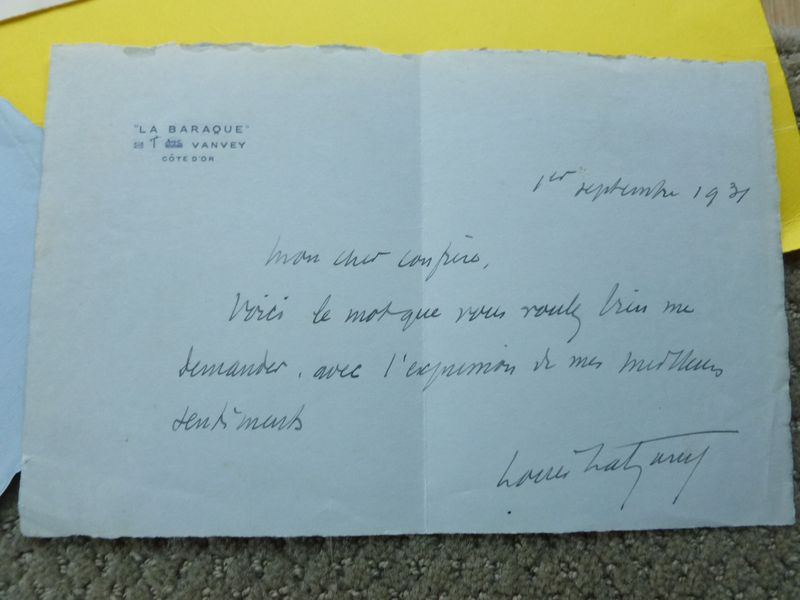 "LA BARAQUE"
T VANVEY
CÔTE D'OR
1er septembre 1931
Mon cher confrère,
Voici le mot que vous voulez bien me
demander, avec l'expression de mes meilleurs
sentiments
Louis Latzarus